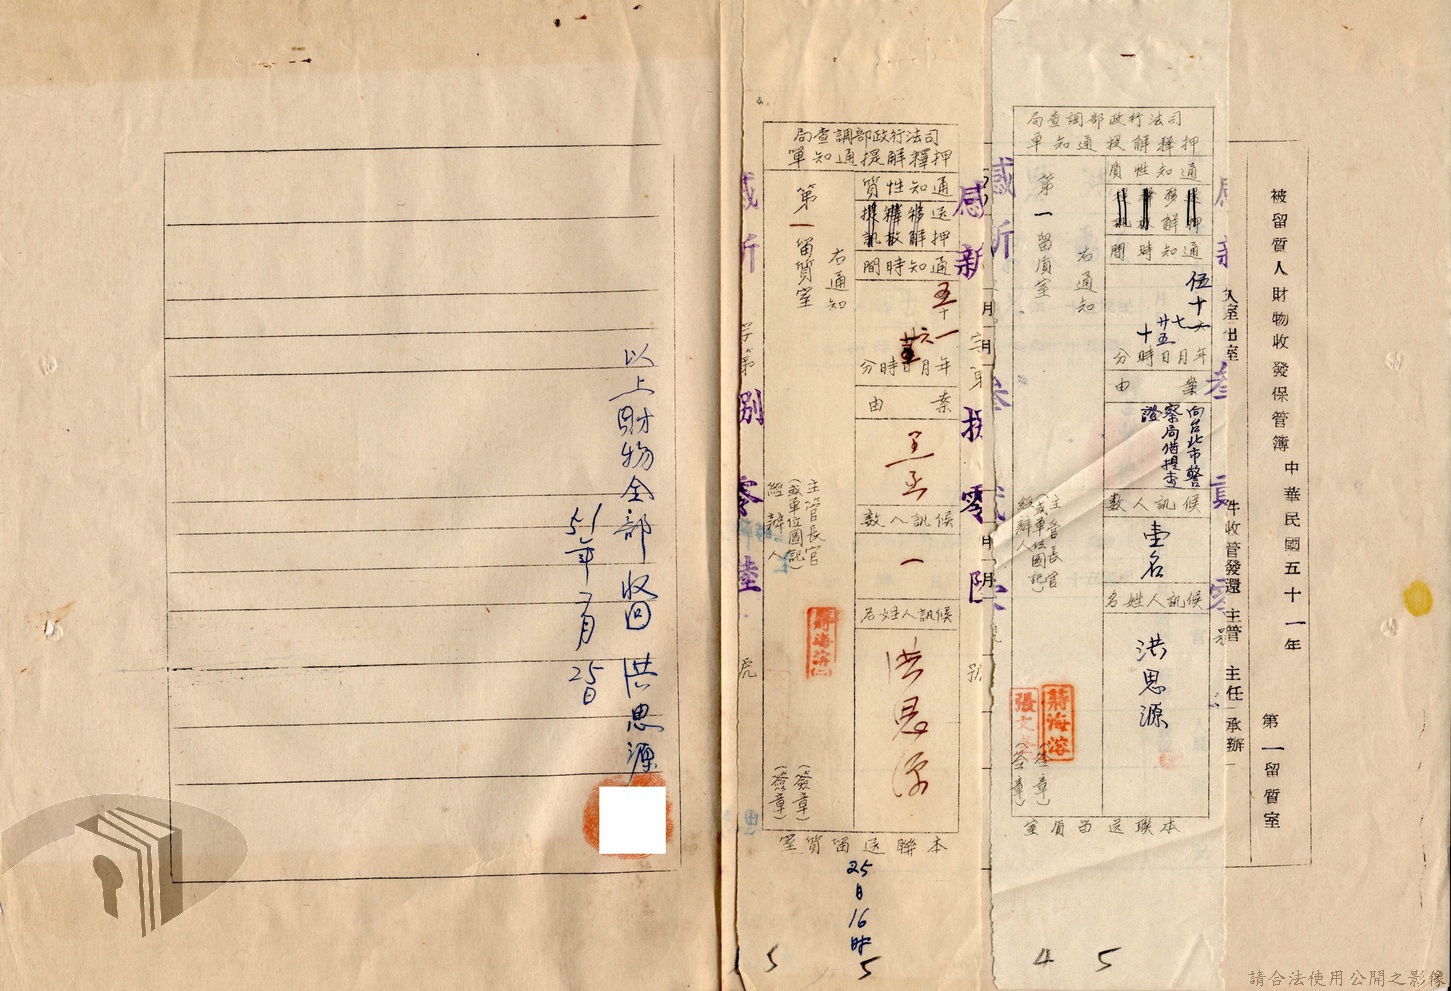 被留質人財物收發保管簿
中華民國五十一年
第一留質室
入室
出室
件
收管
發還
主管
主任
承辦
司法行政部調查局
押釋解提通知單
通知性質
通知時間
伍十一年七月廿五日十時分
案由
向台北市警察局借提查證
候訊人數
壹名
候訊人姓名
洪思源
右通知
第一留質室
主管長官
(或單位圖記)
(簽章)
經辦人
(簽章)
蔣海溶
本聯送留質室
4 5
司法行政部調查局
押釋解提通知單
通知性質
通知時間
年月日時分
案由
候訊人數
一
候訊人姓名
洪思源
右通知
第一留質室
主管長官
(或單位圖記)
(簽章)
經辦人
(簽章)
本聯送留質室
25日16時
5
5
以上財物全部收回 洪思源
51年7月25日
請合法使用公開之影像